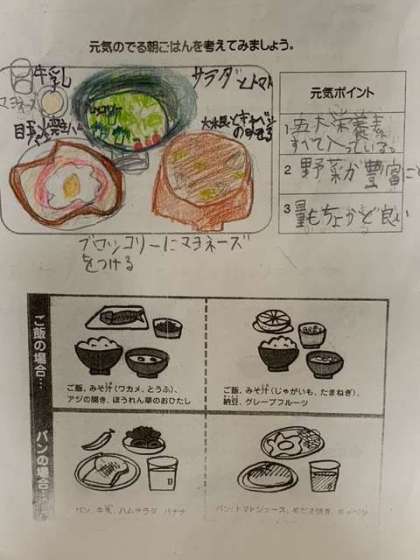 元気のでる朝ごはんを考えてみましょう。
牛乳
サラダとトマト
マヨネーズ
ブロッコリー
のみそ汁
元気ポイント
1 五大栄養素
すべて入っている。
2 野菜が豊富
3 量もちょうど良い
ブロッコリーにマヨネーズ
をつける
ご飯の場合…
ご飯、みそ汁(ワカメ、とうふ)、
アジの開き、ほうれん草のおひたし
ご飯、みそ汁(じゃがいも、たまねぎ)、
納豆、グレープフルーツ
パンの場合…
パン、牛乳、ハムサラダ、バナナ
パン、トマトジュース、